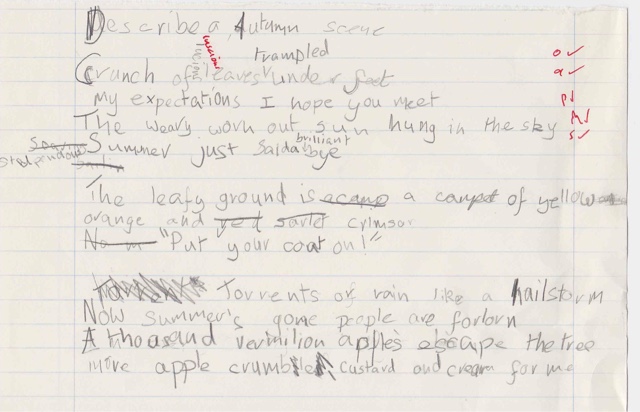 Describe a Autumn scene
trampled
Crunch of leaves under feet
my expectations I hope you meet
The weary worn out sun hung in the sky
brilliant
Summer just said a bye
The leafy ground is a carpet of yellow
orange and red scarlet crimson
"Put your coat on!"
Torrents of rain like a hailstorm
Now Summer's gone people are forlorn
A thousand vermilion apples escape the tree
more apple crumble, custard and cream for me